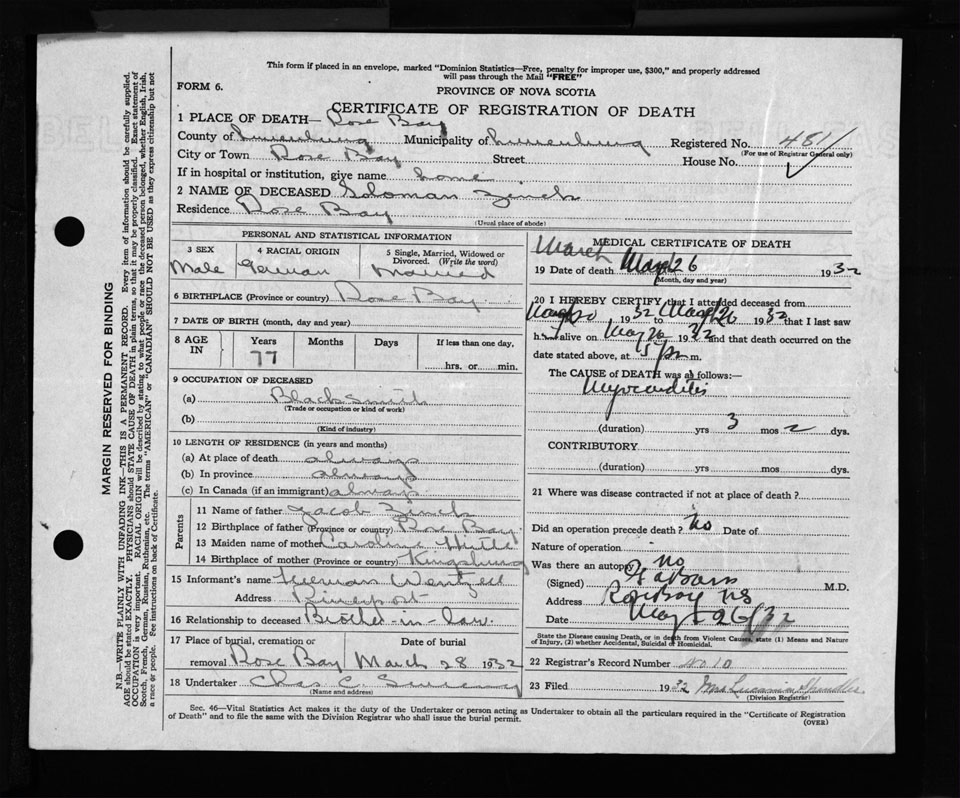 This form if placed in an envelope, marked "Dominion Statistics—Free, penalty for improper use, $300," and properly addressed
will pass through the Mail "FREE"
FORM 6.
PROVINCE OF NOVA SCOTIA
CERTIFICATE OF REGISTRATION OF DEATH
1 PLACE OF DEATH— Rose Bay
County of Lunenburg Municipality of Lunenburg Registered No. 481
(For use of Registrar General only)
City or Town Rose Bay Street House No.
If in hospital or institution, give name home
2 NAME OF DECEASED Soloman Zinck
Residence Rose Bay
(Usual place of abode)
PERSONAL AND STATISTICAL INFORMATION
3 SEX 4 RACIAL ORIGIN 5 Single, Married, Widowed or
Divorced. (Write the word)
Male German Married
6 BIRTHPLACE (Province or country) Rose Bay
7 DATE OF BIRTH (month, day and year)
8 AGE IN Years Months Days If less than one day,
77 hrs. or min.
9 OCCUPATION OF DECEASED
(a) Blacksmith
(Trade or occupation or kind of work)
(b)
(Kind of industry)
10 LENGTH OF RESIDENCE (in years and months)
(a) At place of death always
(b) In province always
(c) In Canada (if an immigrant) always
Parents
11 Name of father Jacob Zinck
12 Birthplace of father (Province or country) Rose Bay
13 Maiden name of mother Caroline
14 Birthplace of mother (Province or country) Kingsburg
15 Informant's name Wentzell
Address Riverport
16 Relationship to deceased Brother-in-law.
17 Place of burial, cremation or Date of burial
removal Rose Bay March 28 1932
18 Undertaker Chas C. Sweeney
(Name and address)
MEDICAL CERTIFICATE OF DEATH
March
19 Date of death May 26 1932
(Month, day and year)
20 I HEREBY CERTIFY that I attended deceased from
1932 to 26 1932 that I last saw
h alive on May 26 1932 and that death occurred on the
date stated above, at 5 p m.
The CAUSE of DEATH was as follows:—
Myocarditis
(duration) yrs 3 mos 2 dys.
CONTRIBUTORY
(duration) yrs. mos. dys.
21 Where was disease contracted if not at place of death?
Did an operation precede death? no Date of
Nature of operation
Was there an autopsy no
(Signed) M.D.
Address Rose Bay NS
Date May 26/32
State the Disease causing Death, or in death from Violent Causes state (1) Means and Nature
of Injury, (2) whether Accidental, Suicidal or Homicidal.
22 Registrar's Record Number No. 10
23 Filed 1932 Mrs
(Division Registrar)
Sec. 46—Vital Statistics Act makes it the duty of the Undertaker or person acting as Undertaker to obtain all the particulars required in the "Certificate of Registration
of Death" and to file the same with the Division Registrar who shall issue the burial permit.
(OVER)
MARGIN RESERVED FOR BINDING
N.B.—WRITE PLAINLY WITH UNFADING INK—THIS IS A PERMANENT RECORD. Every item of information should be carefully supplied.
AGE should be stated EXACTLY. PHYSICIANS should STATE CAUSE OF DEATH in plain terms, so that it may be properly classified. Exact statement of
OCCUPATION is very important. RACIAL ORIGIN will be described by stating to what people or race the deceased person belonged, whether English, Irish,
Scotch, French, German, Russian, Ruthenian, etc. The terms "AMERICAN" or "CANADIAN" SHOULD NOT BE USED as they express citizenship but not
a race or people. Fee instructions on back of Certificate.